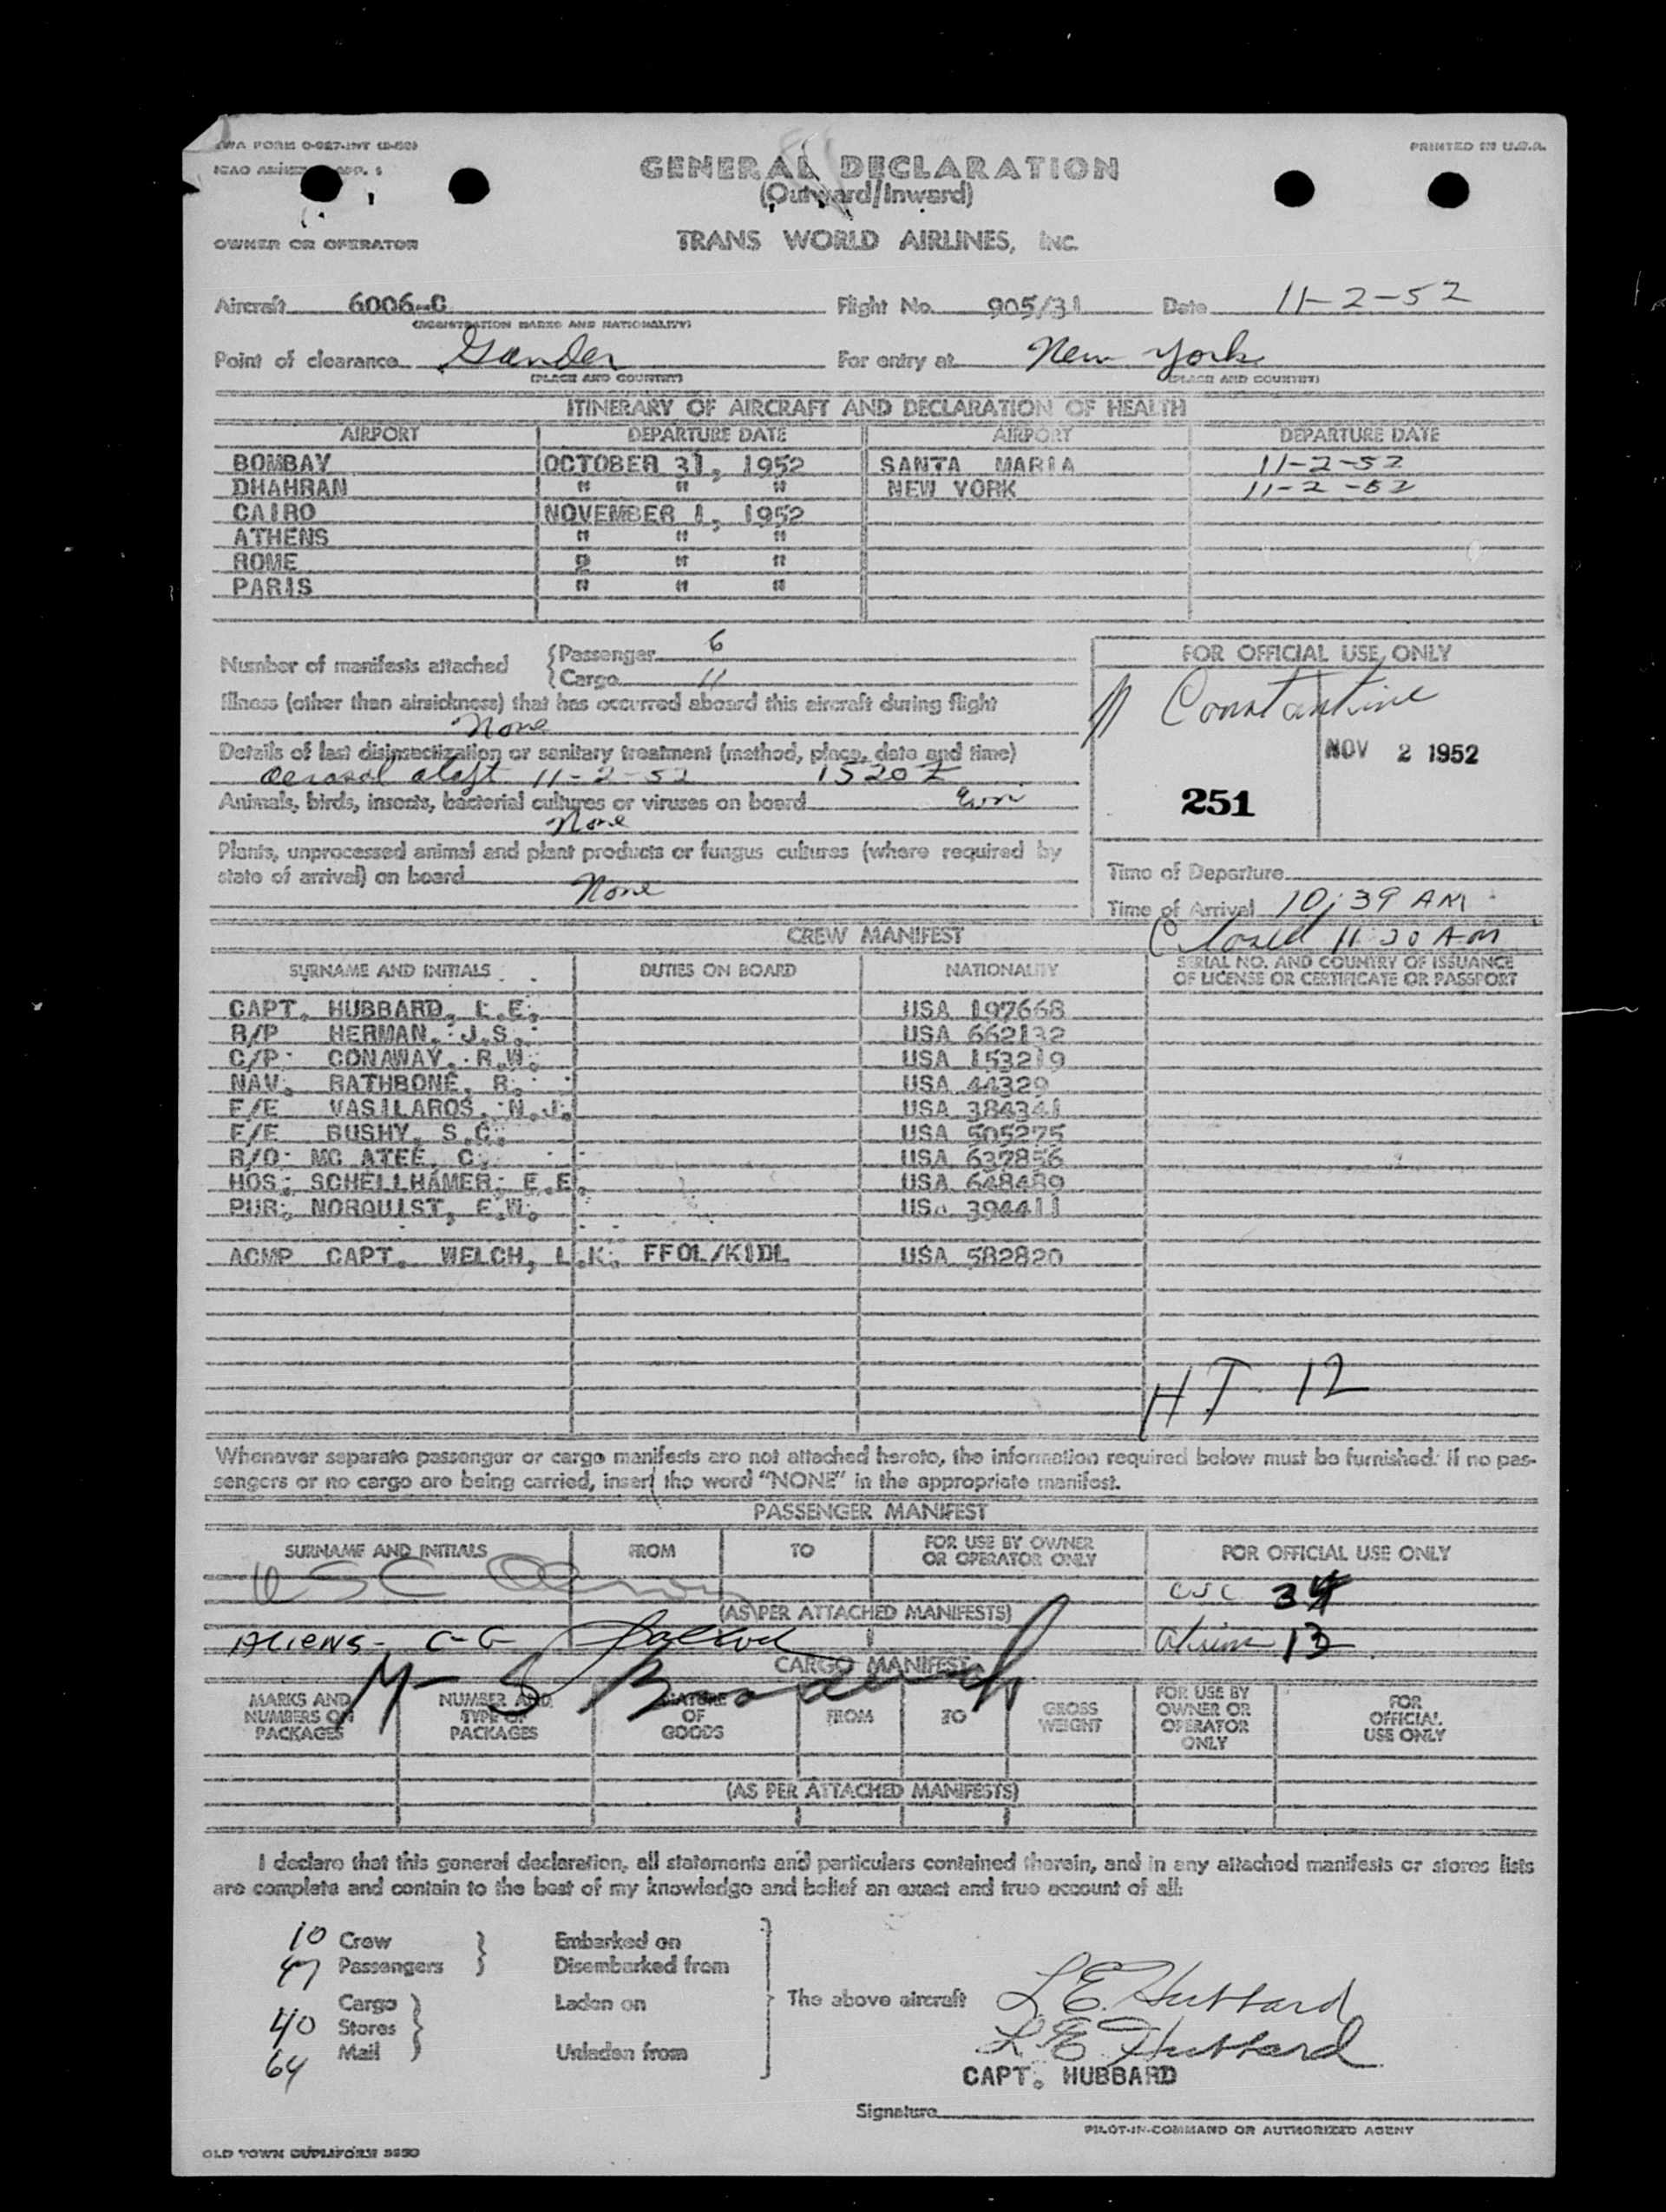 TWA FORM O-927-INT (2-52)
PRINTED IN U.S.A.
ICAO ANNEX APP. 1
GENERAL DECLARATION
(Outward/Inward)
OWNER OR OPERATOR TRANS WORLD AIRLINES, INC.
Aircraft 6006-C Flight No. 905/31 Date 11-2-52
(REGISTRATION MARKS AND NATIONALITY)
Point of clearance Gander For entry at New York
(PLACE AND COUNTRY) (PLACE AND COUNTRY)
ITINERARY OF AIRCRAFT AND DECLARATION OF HEALTH
AIRPORT DEPARTURE DATE AIRPORT DEPARTURE DATE
BOMBAY OCTOBER 31, 1952 SANTA MARIA 11-2-52
DHAHRAN " " " NEW YORK 11-2-52
CAIRO NOVEMBER 1, 1952
ATHENS " " "
ROME 2 " "
PARIS " " "
Number of manifests attached {Passenger 6
{Cargo 11
FOR OFFICIAL USE ONLY
Illness (other than airsickness) that has occurred aboard this aircraft during flight
None
Constantine
Details of last disinsectization or sanitary treatment (method, place, date and time)
aerosol aloft 11-2-52 1520Z
NOV 2 1952
Animals, birds, insects, bacterial cultures or viruses on board
None
251
Plants, unprocessed animal and plant products or fungus cultures (where required by
state of arrival) on board None
Time of Departure
Time of Arrival 10;39 AM
Closed 11 30 AM
CREW MANIFEST
SURNAME AND INITIALS DUTIES ON BOARD NATIONALITY SERIAL NO. AND COUNTRY OF ISSUANCE
OF LICENSE OR CERTIFICATE OR PASSPORT
CAPT. HUBBARD, L.E. USA 197668
R/P HERMAN, J.S. USA 662132
C/P CONAWAY, R.W. USA 153219
NAV. RATHBONE, R. USA 44329
F/E VASILAROS, N.J. USA 384341
F/E BUSHY, S.C. USA 505275
R/O MC ATEE, C. USA 637856
HOS. SCHELLHAMER, E.E. USA 648489
PUR. NORQUIST, E.W. USA 394411
ACMP CAPT. WELCH, L.K. FFOL/KIDL USA 582820
HT 12
Whenever separate passenger or cargo manifests are not attached hereto, the information required below must be furnished. If no pas-
sengers or no cargo are being carried, insert the word "NONE" in the appropriate manifest.
PASSENGER MANIFEST
SURNAME AND INITIALS FROM TO FOR USE BY OWNER
OR OPERATOR ONLY FOR OFFICIAL USE ONLY
USC USC 34
(AS PER ATTACHED MANIFESTS)
ALIENS - C-G 13
CARGO MANIFEST
MARKS AND
NUMBERS ON
PACKAGES NUMBER AND
TYPE OF
PACKAGES NATURE
OF
GOODS FROM TO GROSS
WEIGHT FOR USE BY
OWNER OR
OPERATOR
ONLY FOR
OFFICIAL
USE ONLY
(AS PER ATTACHED MANIFESTS)
I declare that this general declaration, all statements and particulars contained therein, and in any attached manifests or stores lists
are complete and contain to the best of my knowledge and belief an exact and true account of all:
10 Crew } Embarked on
47 Passengers } Disembarked from
Cargo } Laden on The above aircraft L.E. Hubbard
40 Stores
64 Mail } Unladen from L.E. Hubbard
CAPT. HUBBARD
Signature
PILOT-IN-COMMAND OR AUTHORIZED AGENT
OLD TOWN DUPLIFORM 3250